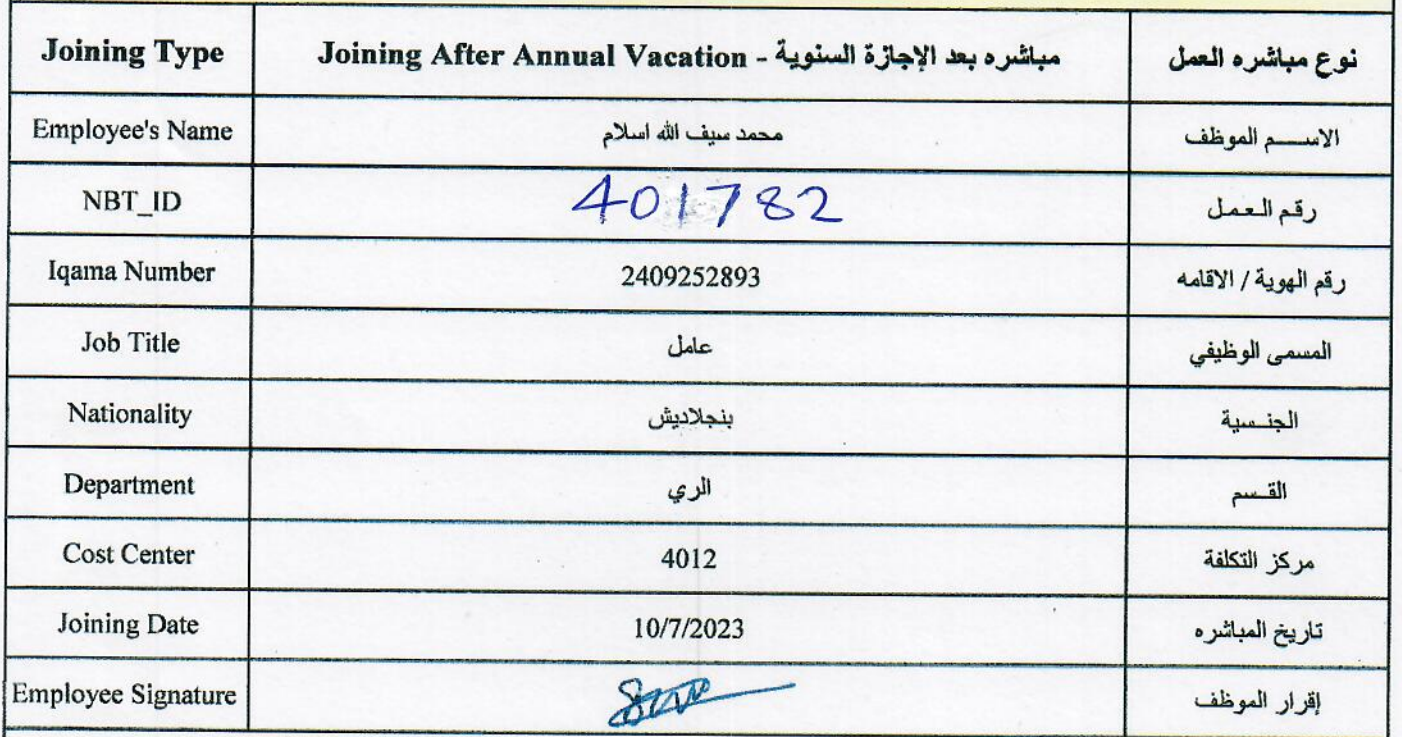 Joining Type Joining After Annual Vacation - مباشره بعد الإجازة السنوية نوع مباشره العمل
Employee's Name محمد سيف الله اسلام الاســـم الموظف
NBT_ID 401782 رقم الـعـمـل
Iqama Number 2409252893 رقم الهوية / الاقامه
Job Title عامل المسمى الوظيفي
Nationality بنجلاديش الجنــسية
Department الري القــسم
Cost Center 4012 مركز التكلفة
Joining Date 10/7/2023 تاريخ المباشره
Employee Signature إقرار الموظف